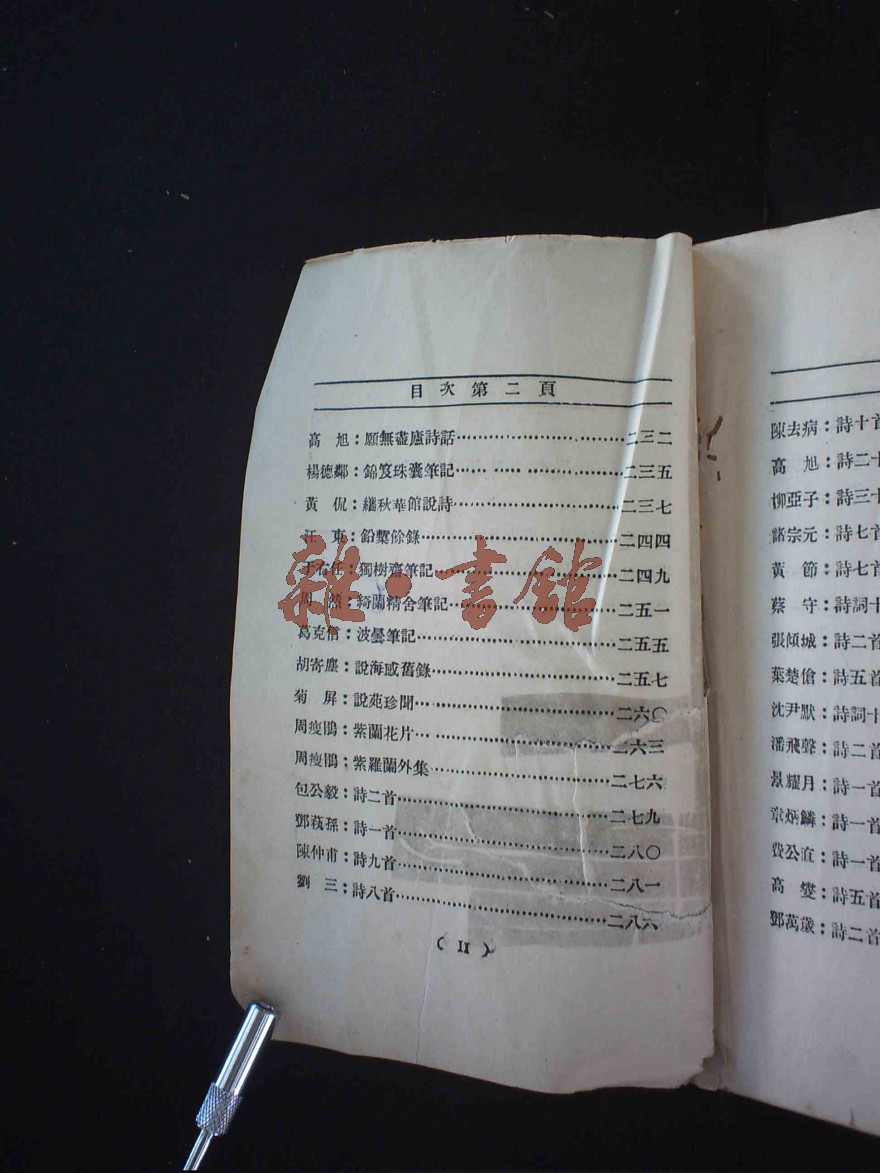 目次第二頁
高 旭：願無盡廬詩話⋯⋯二三二
楊德鄰：錦笈珠囊筆記⋯⋯二三五
黃 侃：繼秋華館說詩⋯⋯二三七
汪 東：鉛槧餘錄⋯⋯二四四
于右任：獨樹齋筆記⋯⋯二四九
周 然：綺蘭精舍筆記⋯⋯二五一
葛克信：波曇筆記⋯⋯二五五
胡寄塵：說海感舊錄⋯⋯二五七
菊 屏：說苑珍聞⋯⋯二六〇
周瘦鵑：紫蘭花片⋯⋯二六三
周瘦鵑：紫羅蘭外集⋯⋯二七六
包公毅：詩二首⋯⋯二七九
鄧蓺孫：詩一首⋯⋯二八〇
陳仲甫：詩九首⋯⋯二八一
劉 三：詩八首⋯⋯二八六
（II）
陳去病：詩十首
高 旭：詩二十
柳亞子：詩三十
諸宗元：詩七首
黃 節：詩七首
蔡 守：詩詞十
張傾城：詩二首
葉楚傖：詩五首
沈尹默：詩詞十
潘飛聲：詩二首
景耀月：詩一首
章炳麟：詩一首
費公直：詩一首
高 燮：詩五首
鄧萬歲：詩二首
雜·書館